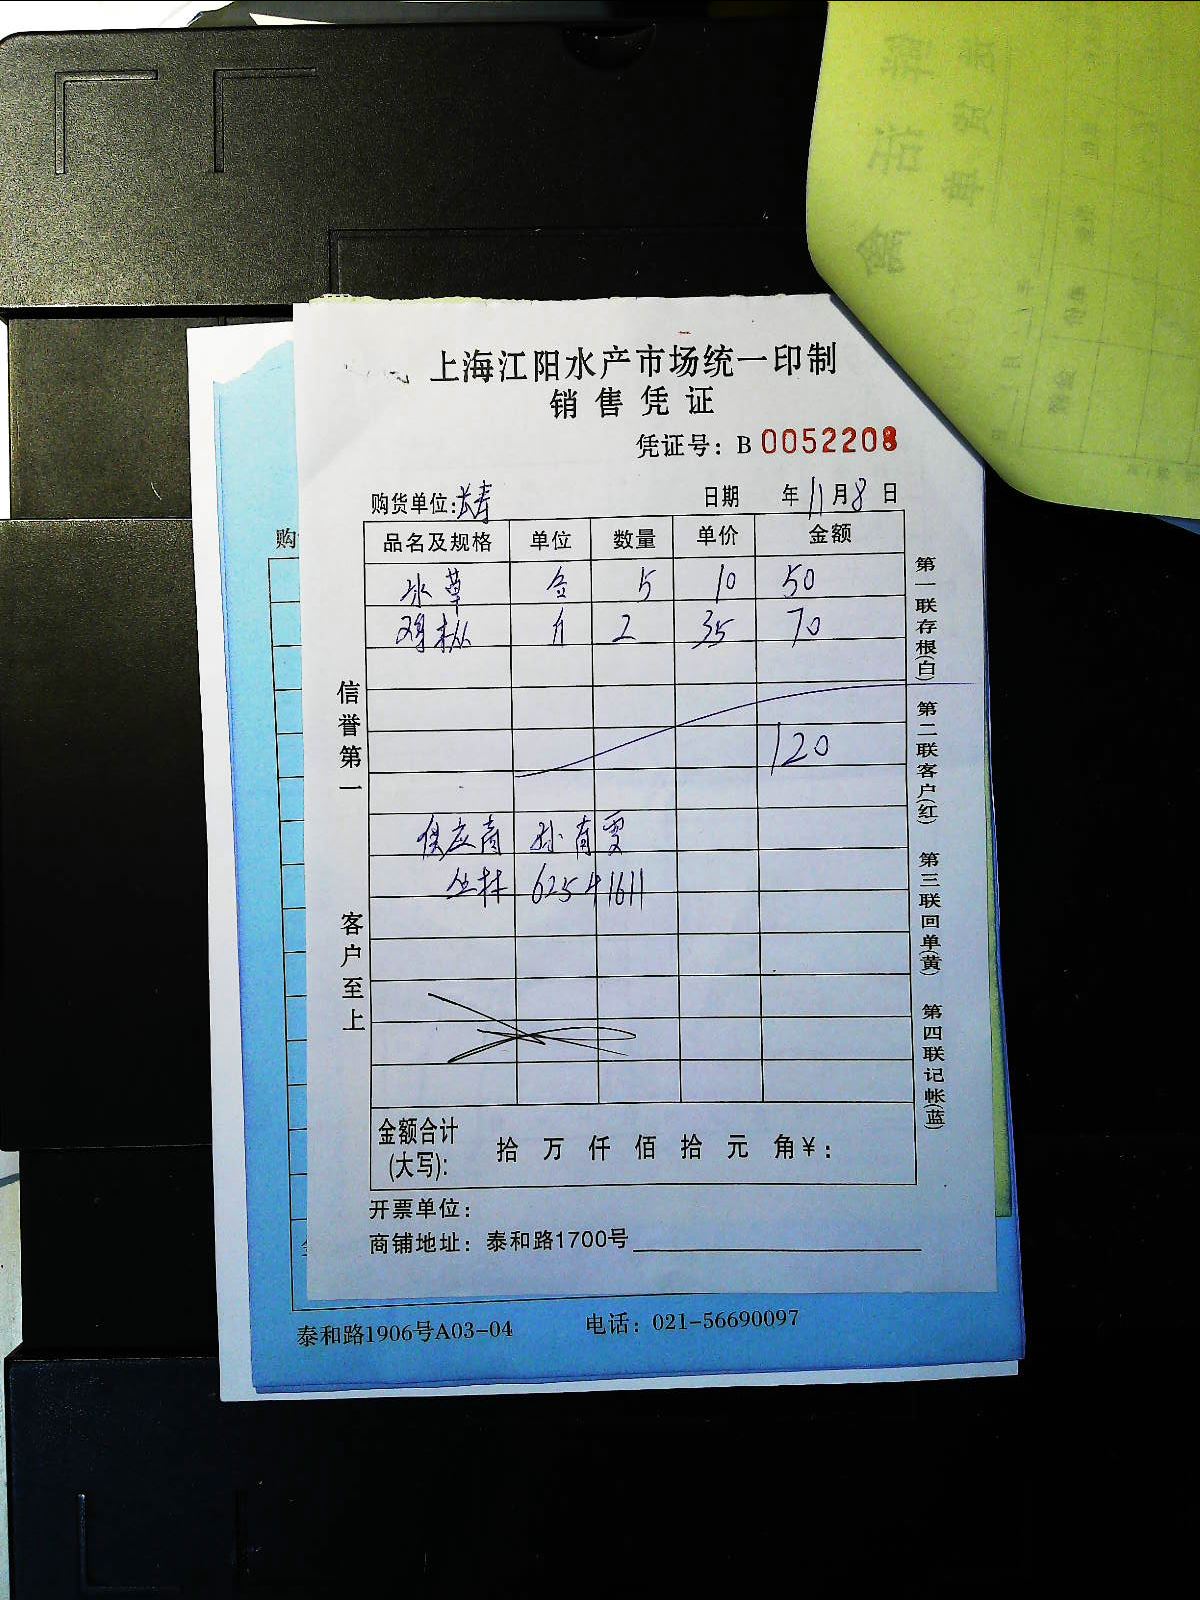 上海江阳水产市场统一印制
销售凭证
凭证号：B 0052208
购货单位:长寿 日期 年11月8日
品名及规格 单位 数量 单价 金额
冰草 盒 5 10 50
鸡枞 斤 2 35 70
120
供应商 孙有雯
丛林 62541611
金额合计(大写): 拾 万 仟 佰 拾 元 角¥：
开票单位：
商铺地址：泰和路1700号
信誉第一
客户至上
第一联存根(白) 第二联客户(红) 第三联回单(黄) 第四联记帐(蓝)
购
泰和路1906号A03-04 电话：021-56690097